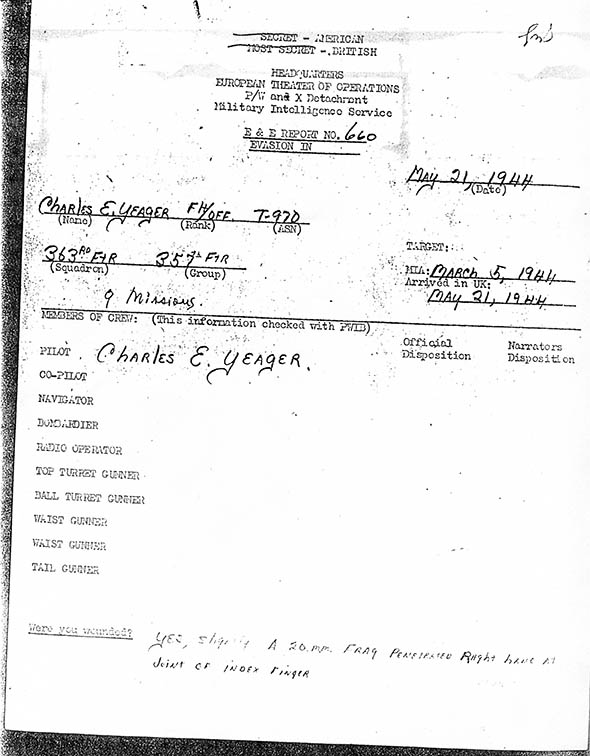 SECRET - AMERICAN
MOST SECRET - BRITISH
HEADQUARTERS
EUROPEAN THEATER OF OPERATIONS
P/W and X Detachment
Military Intelligence Service
E & E REPORT NO. 660
EVASION IN
MAY 21, 1944
(Date)
CHARLES E. YEAGER FH/OFF. T-970
(Name) (Rank) (ASN)
363RD FTR 357th FTR
(Squadron) (Group)
TARGET:
MIA: MARCH 5, 1944
Arrived in UK:
MAY 21, 1944
9 Missions.
MEMBERS OF CREW: (This information checked with PWIB)
Official Disposition
Narrators Disposition
PILOT CHARLES E. YEAGER.
CO-PILOT
NAVIGATOR
BOMBARDIER
RADIO OPERATOR
TOP TURRET GUNNER
BALL TURRET GUNNER
WAIST GUNNER
WAIST GUNNER
TAIL GUNNER
Were you wounded? YES, Slightly A 20.MM. FRAG PENETRATED RIGHT HAND AT
JOINT OF INDEX FINGER